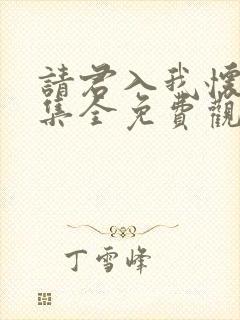 請君入我懷
集全免費觀
丁雪峰